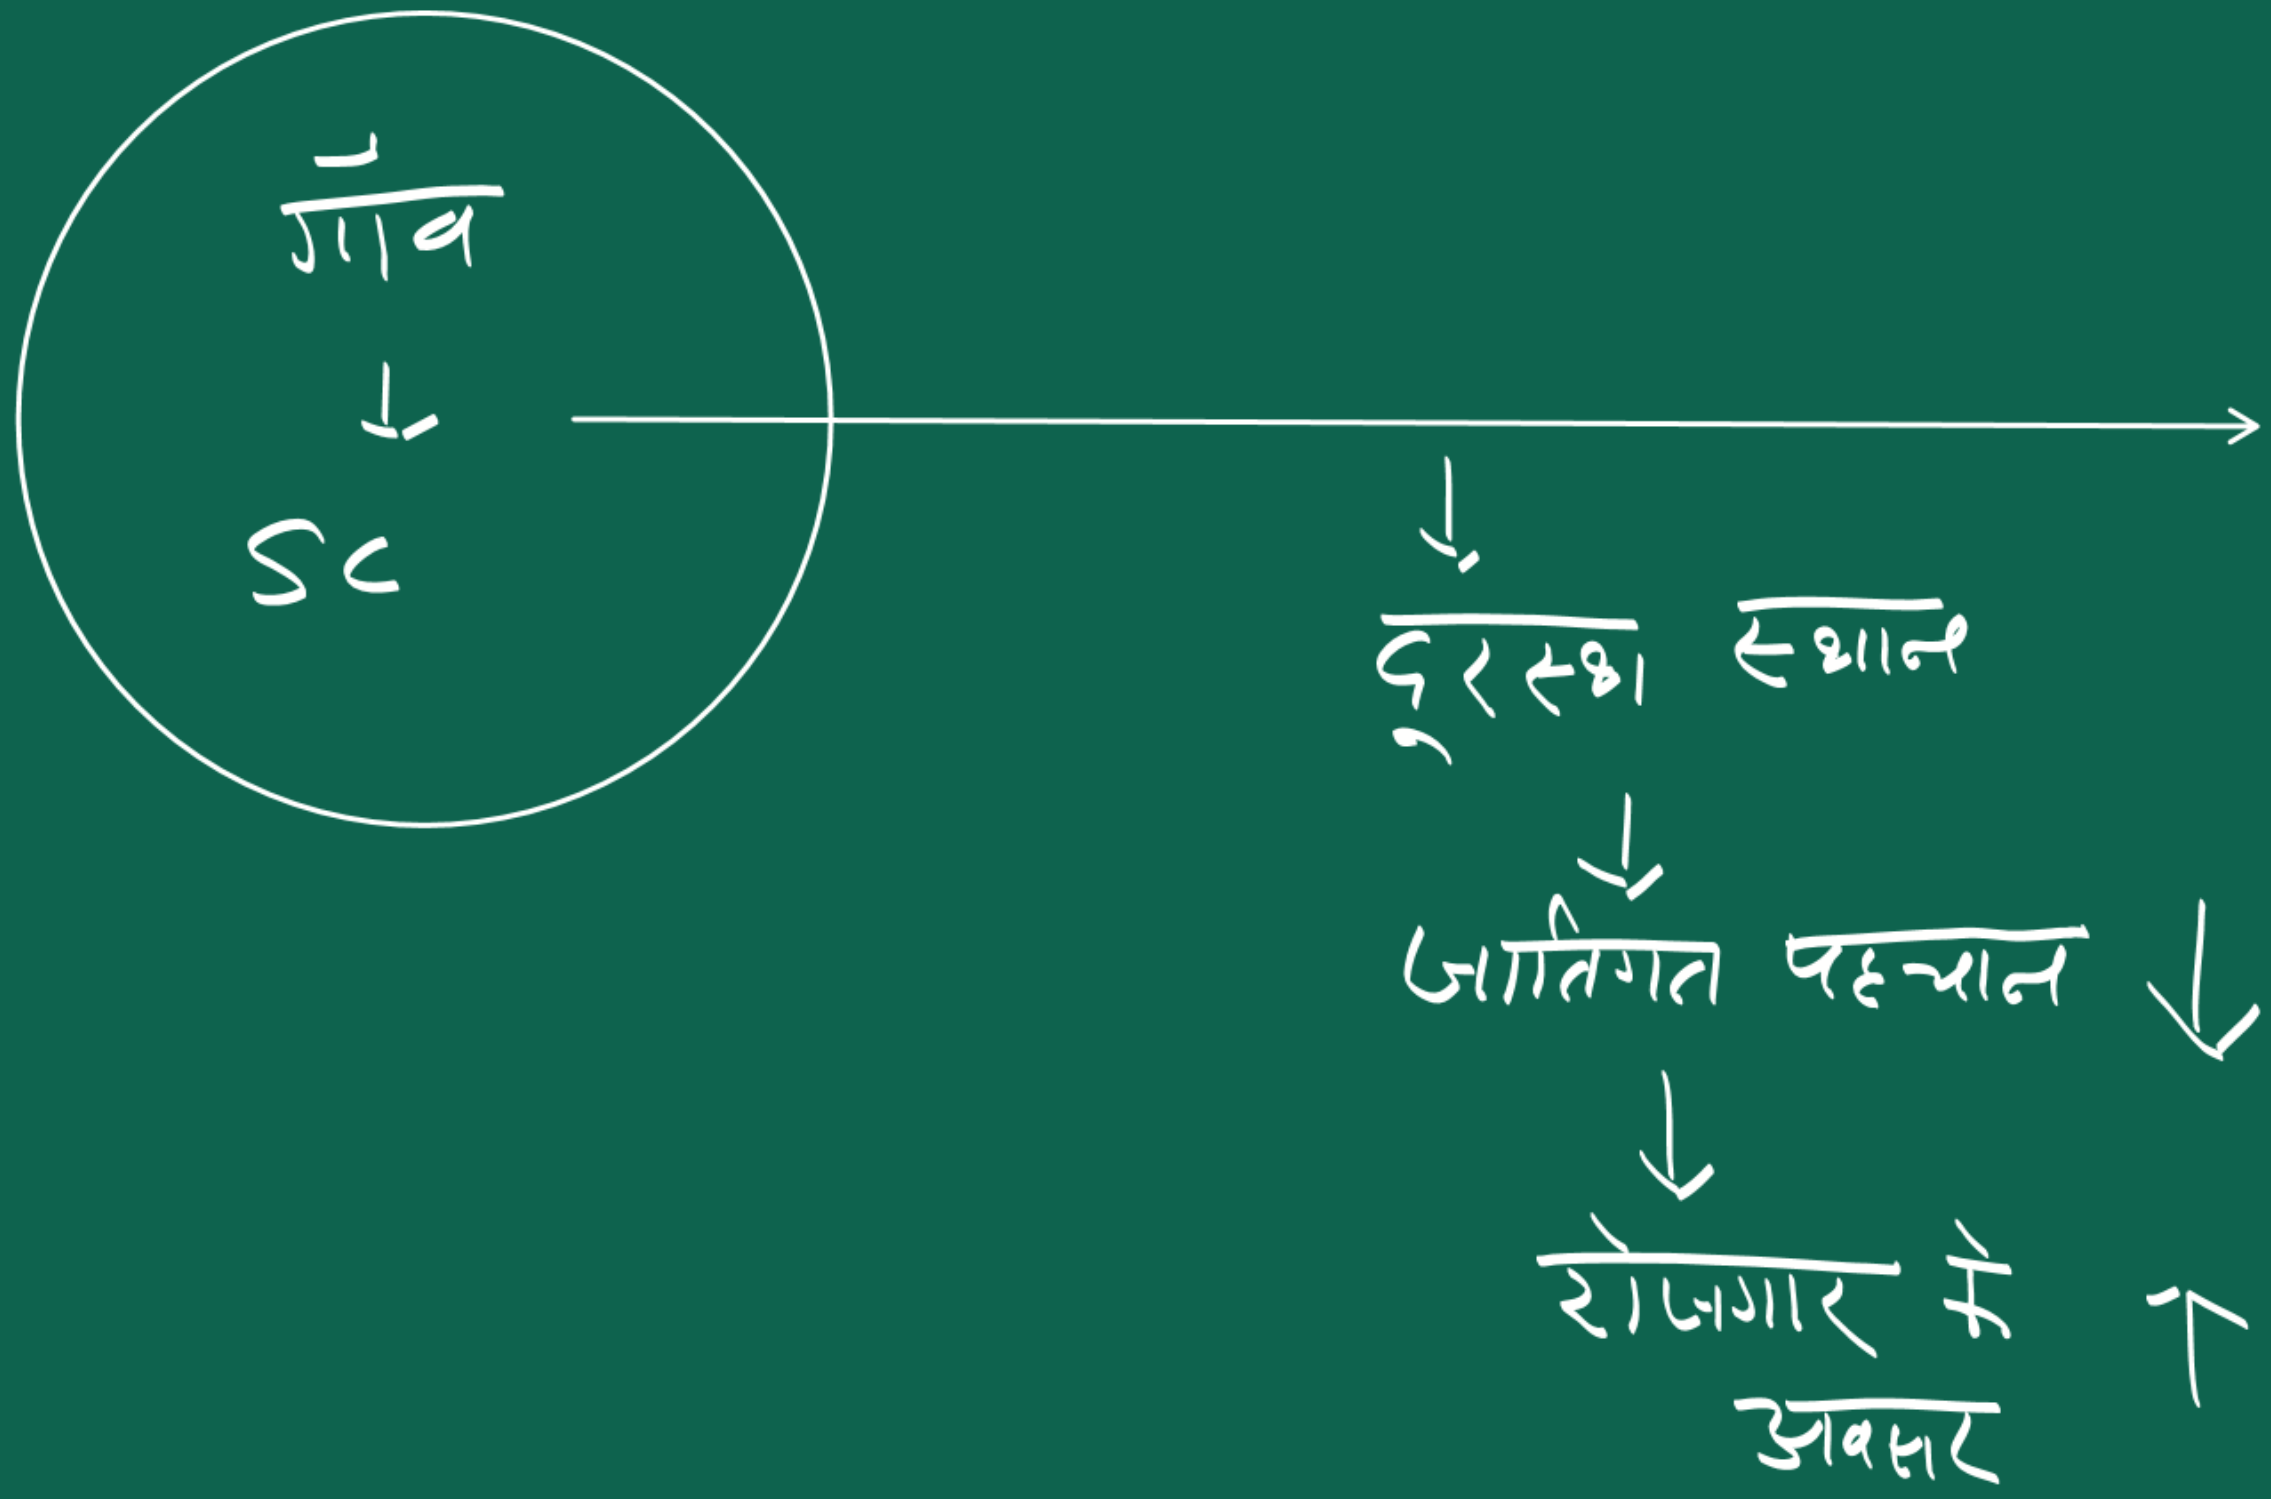 गाँव
↓
SC
→
↓
दूरस्थ स्थान
↓
जातिगत पहचान ↓
↓
रोजगार में ↑
अवसर